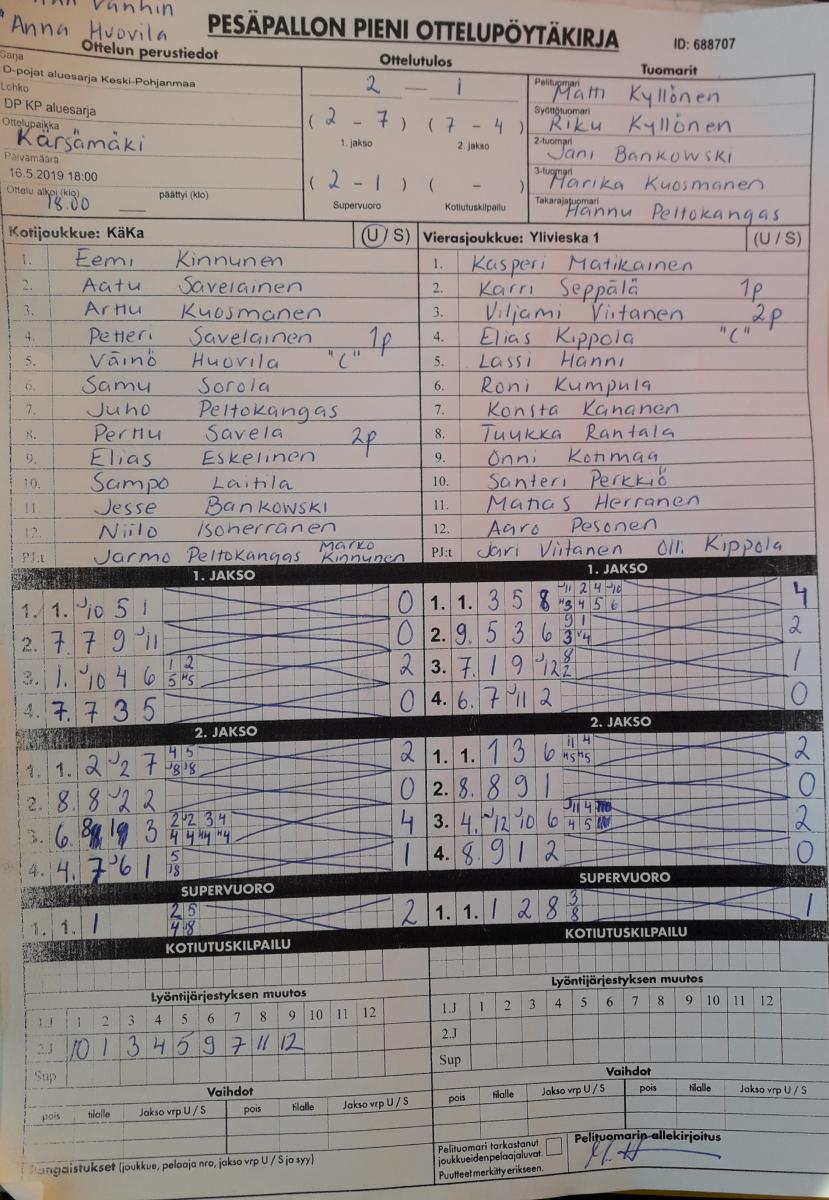 Vanhin
"Anna Huovila
PESÄPALLON PIENI OTTELUPÖYTÄKIRJA
ID: 688707
Ottelun perustiedot
Ottelutulos
Tuomarit
Sarja
D-pojat aluesarja Keski-Pohjanmaa
Lohko
DP KP aluesarja
Ottelupaikka
Kärsämäki
Päivämäärä
16.5.2019 18:00
Ottelu alkoi (klo) päättyi (klo)
18.00
2 — 1
( 2 - 7 ) ( 7 - 4 )
1. jakso 2. jakso
( 2 - 1 ) ( - )
Supervuoro Kotiutuskilpailu
Pelituomari
Matti Kyllönen
Syöttötuomari
Riku Kyllönen
2-tuomari
Jani Bankowski
3-tuomari
Marika Kuosmanen
Takarajatuomari
Hannu Peltokangas
Kotijoukkue: KäKa (U / S)
1. Eemi Kinnunen
2. Aatu Savelainen
3. Arttu Kuosmanen
4. Petteri Savelainen 1p
5. Väinö Huovila "C"
6. Samu Sorola
7. Juho Peltokangas
8. Perttu Savela 2p
9. Elias Eskelinen
10. Sampo Laitila
11. Jesse Bankowski
12. Niilo Isoherranen
PJ:t Jarmo Peltokangas Marko Kinnunen
Vierasjoukkue: Ylivieska 1 (U / S)
1. Kasperi Matikainen
2. Karri Seppälä 1p
3. Viljami Viitanen 2p
4. Elias Kippola "C"
5. Lassi Hanni
6. Roni Kumpula
7. Konsta Kananen
8. Tuukka Rantala
9. Onni Kotimaa
10. Santeri Perkkiö
11. Matias Herranen
12. Aaro Pesonen
PJ:t Jari Viitanen Olli Kippola
1. JAKSO
1. 1. J10 5 1 0
2. 7. 7 9 J11 0
3. 1. J10 4 6 2
4. 7. 7 3 5 0
2. JAKSO
1. 1. 2 J2 7 2
2. 8. 8 J2 2 0
3. 6. 3 4
4. 4. 7 J6 1 1
SUPERVUORO
1. 1. 1 2
KOTIUTUSKILPAILU
1. JAKSO
1. 1. 3 5 8 4
2. 9. 5 3 6 2
3. 7. 1 9 J12 1
4. 6. 7 J11 2 0
2. JAKSO
1. 1. 1 3 6 2
2. 8. 8 9 1 0
3. 4. J12 J10 6 2
4. 8. 9 1 2 0
SUPERVUORO
1. 1. 1 2 8 1
KOTIUTUSKILPAILU
Lyöntijärjestyksen muutos
1.J 1 2 3 4 5 6 7 8 9 10 11 12
2.J 10 1 3 4 5 9 7 11 12
Sup
Vaihdot
pois tilalle Jakso vrp U / S pois tilalle Jakso vrp U / S
Rangaistukset (joukkue, pelaaja nro, jakso vrp U / S ja syy)
Lyöntijärjestyksen muutos
1.J 1 2 3 4 5 6 7 8 9 10 11 12
2.J
Sup
Vaihdot
pois tilalle Jakso vrp U / S pois tilalle Jakso vrp U / S
Pelituomari tarkastanut
joukkueiden pelaajaluvat.
Puutteet merkitty erikseen.
Pelituomarin allekirjoitus